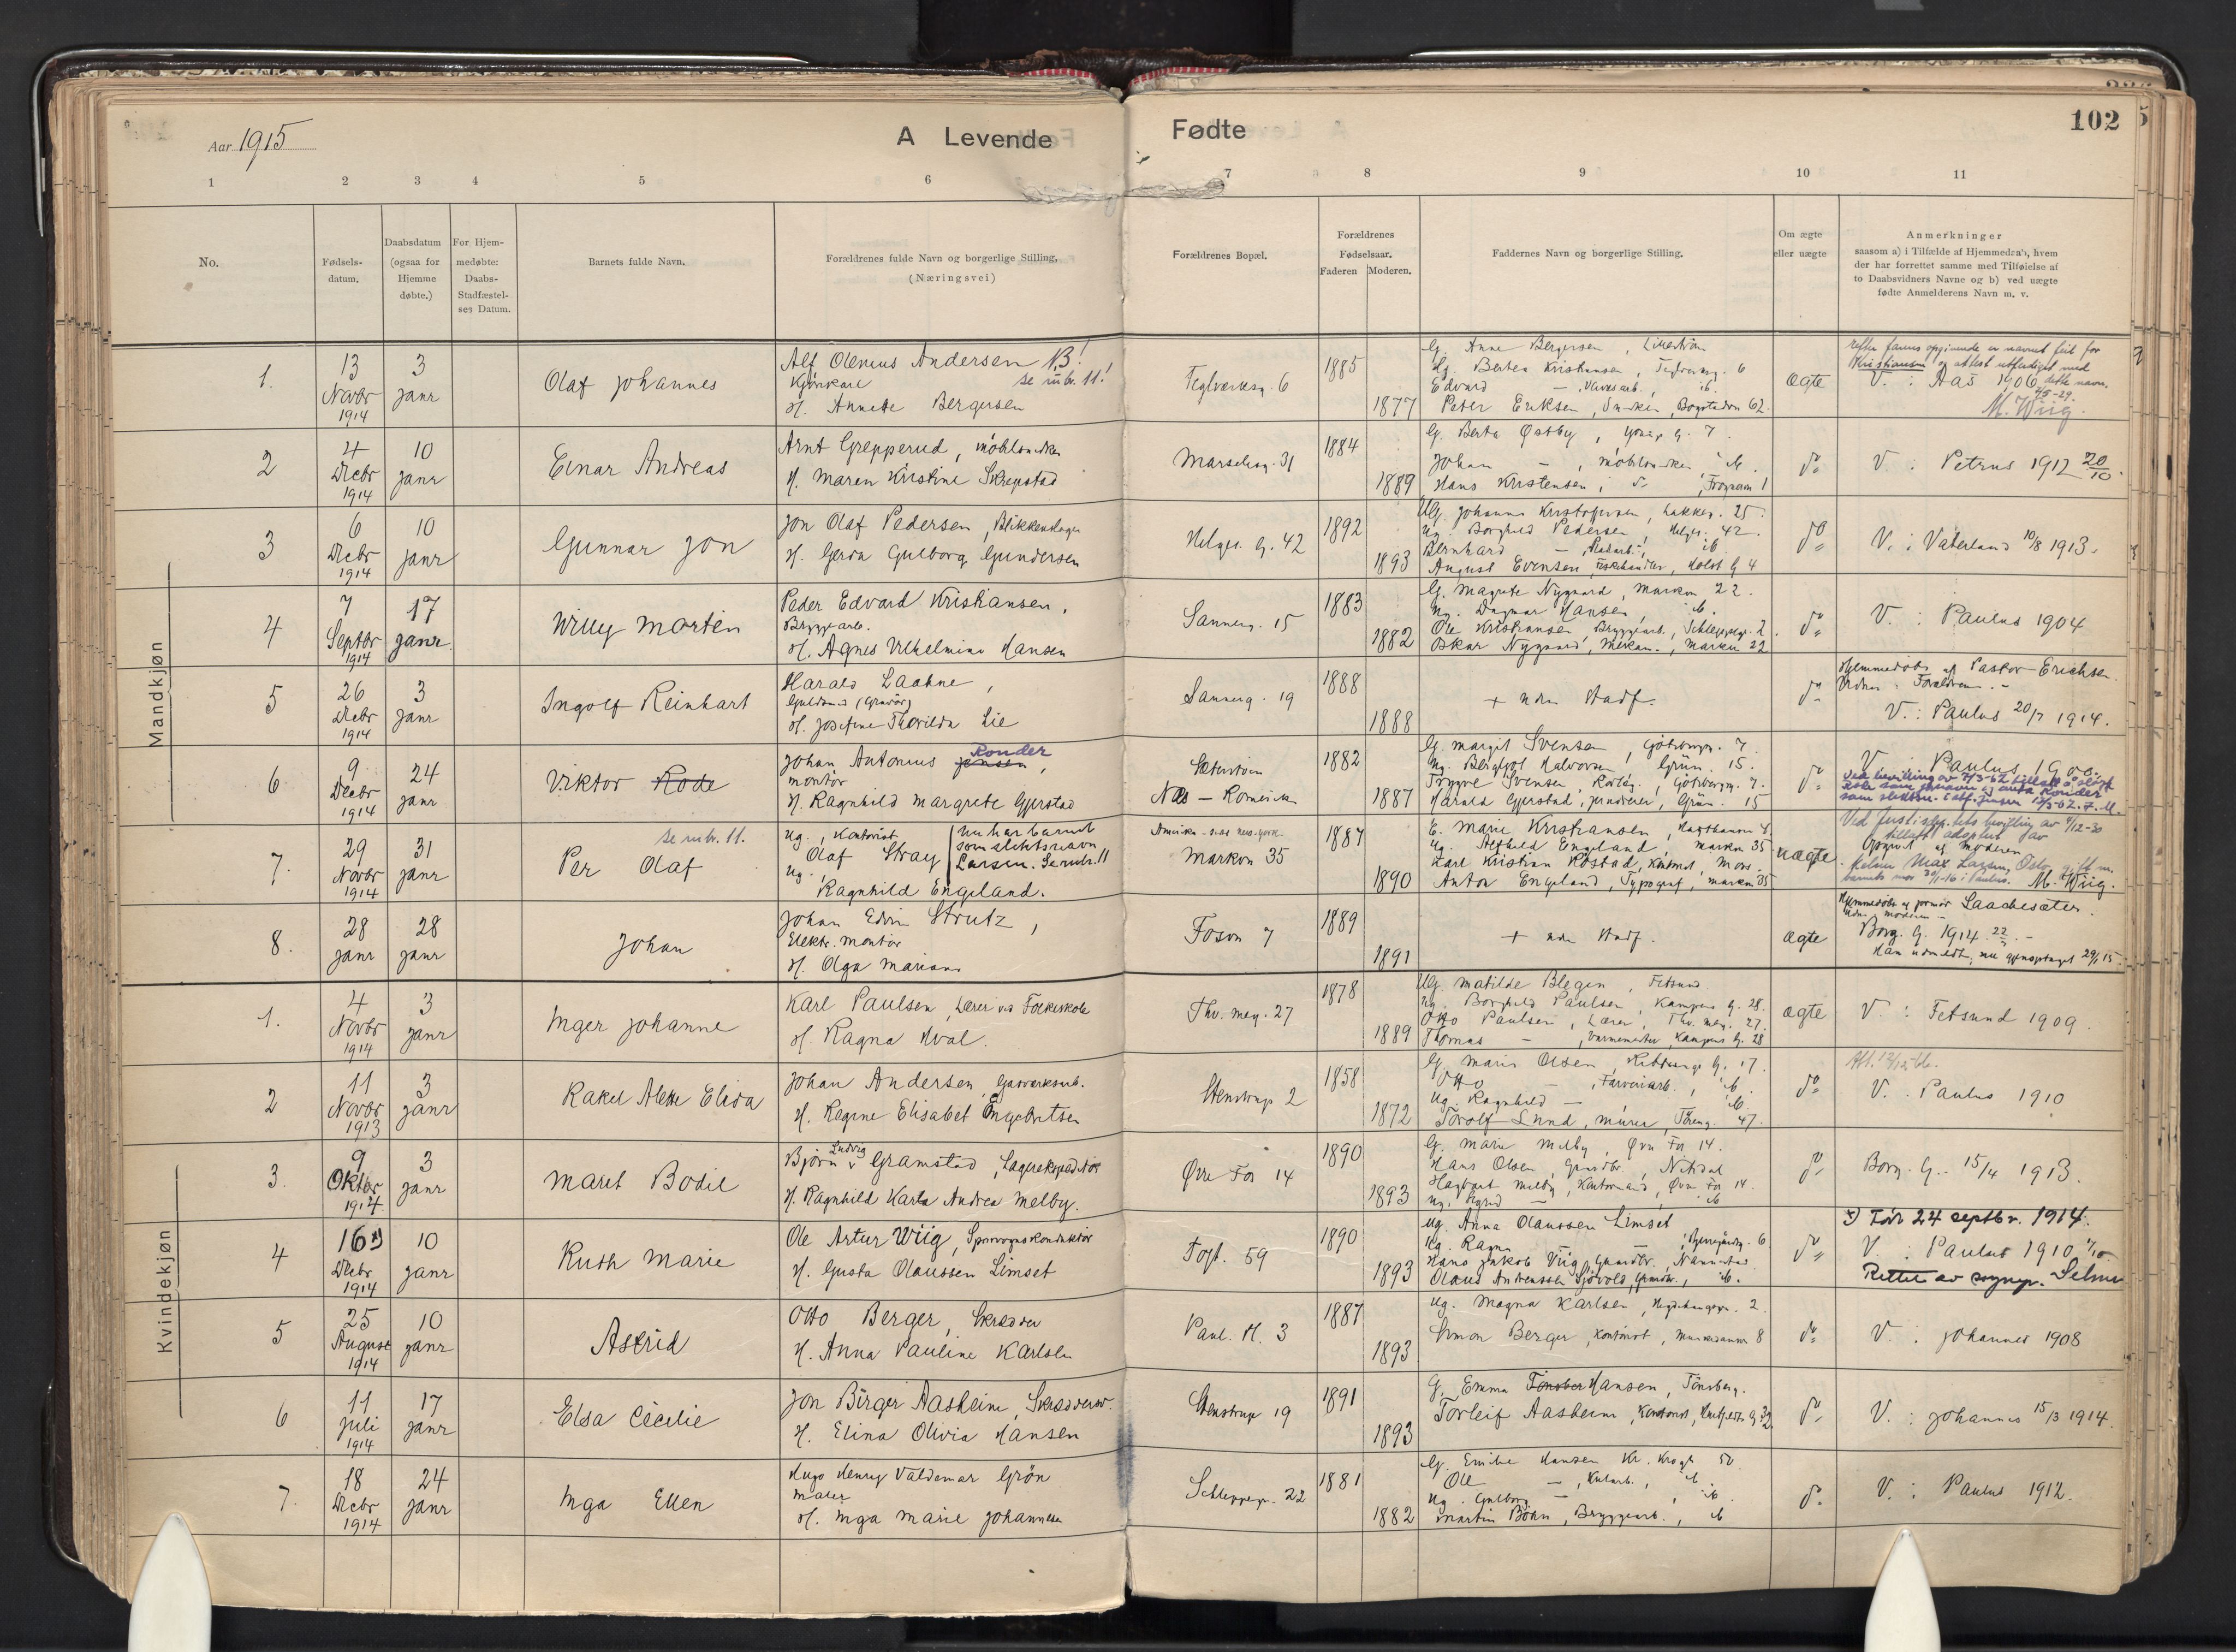 102
Aar 1915
A Levende Fødte
1 2 3 4 5 6 7 8 9 10 11
No.
Fødsels-
datum.
Daabsdatum
(ogsaa for
Hjemme
døbte.)
For Hjem-
medøbte:
Daabs-
Stadfæstel-
ses Datum.
Barnets fulde Navn.
Forældrenes fulde Navn og borgerlige Stilling,
(Næringsvei)
Forældrenes Bopæl.
Forældrenes
Fødselsaar.
Faderen Moderen.
Faddernes Navn og borgerlige Stilling.
Om ægte
eller uægte
Anmerkninger
saasom a) i Tilfælde af Hjemmedaab, hvem
der har forrettet samme med Tilføielse af
to Daabsvidners Navne og b) ved uægte
fødte Anmelderens Navn m. v.
Mandkjøn
1.
13
Novbr
1914
3
janr
Olaf Johannes
Alf Olenius Andersen NB!
Kjørekarl se rubr. 11!
H. Annette Bergersen
Teglverksg. 6
1885
1877
G. Anne Bergersen, Lillestrøm
Ug. Berthea Kristiansen, Teglverksg. 6
Edvard — ib.
Peter Eriksen, Snekker, Bogstadvn 62.
ægte
efter farens opgivende er navnet feil for
Kristiansen og attest utferdiget med dette navn.
V. : Aas 1906
M. Wiig.
2
4
Decbr
1914
10
janr
Einar Andreas
Arnt Grepperud, møblsnekker
H. Maren Kristine Skrepstad
Marselisg. 31
1884
1889
G. Berta Østby, 7.
Johan —, møblsnekker, ib.
Hans Kristensen, do, 1
do
V. : Petrus 1912 20/10.
3
6
Decbr
1914
10
janr
Gunnar Jon
Jon Olaf Pedersen, Blikkenslager
H. Gerda Gulborg Gundersen
Helges. G. 42
1892
1893
Ug. Johanne Kristofersen, Lakkeg. 25.
Ug. Borghild Pedersen, Helges. 42.
Bernhard — ib
August Evensen, Fiskehandler, Holst G 4
do
V. : Vaterland 10/8 1913.
4
7
Septbr
1914
17
janr.
Willy Morten
Peder Edvard Kristiansen,
Bryggearb.
H. Agnes Vilhelmine Hansen
Sannerg. 15
1883
1882
G. Magrete Nygaard, Markvn 22.
Ug. Dagmar Hansen, ib.
Ole Kristiansen, Bryggearb., Schleppegr. 2.
Oskar Nygaard, Mekan., Markvn 22
do
V. : Paulus 1904
5
26
Decbr
1914
3
janr
Ingolf Reinhart
Harald Laahne,
Guldsmed (Gravør)
H. Josefine Thorilda Lie
Sannerg. 19
1888
1888
+ uden Stadf.
do
Hjemmedøbt af Pastor Erichsen.
Vidner : Forældrene. -
V. : Paulus 20/7 1914.
6
9
Decbr
1914
24
janr
Viktor Rode
Ronder
Johan Antonius Jensen,
montør
H. Ragnhild Margrete Gjerstad
Næs — Romerike
1882
1887
G. Margit Svensen, Gøteborgg. 7.
Ug. Bergljot Halvorsen, Grün. 15.
Trygve Svensen, Rørlæg., Gøteborgg. 7.
Harald Gjerstad, Grün. 15
do
V. : Paulus
Ved bevilling av 7/3-62 tillatt å sløife
Rode som fornavn og anta Ronder
som slektsn.
7.
29
Novbr
1914
31
janr
se rubr. 11.
Per Olaf
Ug., Kontorist
Olaf Stray
Ug.,
Ragnhild Engeland.
Nu har barnet
som slektsnavn
Larsen. Se rubr. 11
Markvn 35
1887
1890
E. Marie Kristiansen
Ug. Alfhild Engeland, Markvn 35
Karl Kristian Røstad, Kontorist, Moss.
Anton Engeland, Typograf, Markvn 35
uægte
Ved justisdep.tets bevilling av 4/12-30
tillatt adoptert av
Opgivet af moderen
Max Larsen, Oslo, gift m.
barnets mor 30/1-16 i Paulus. M. Wiig.
8.
28
janr
28
janr
Johan
Johan Edvin Strutz,
Elektr. montør
H. Olga Mariane
Fossvn 7
1889
1891
+ uden Stadf.
ægte
Hjemmedøbt af jormor Laachesæter.
Borg. G. 1914 22/3. -
Kvindekjøn
1.
4
Novbr
1914
3
janr
Inger Johanne
Karl Paulsen, Lærer ved Folkeskole
H. Ragna Hval.
Thv. Mey. 27
1878
1889
Ug. Matilde Blegen, Fetsund.
Ug. Borghild Paulsen, Kampens G. 28.
Otto Paulsen, Lærer, Thv. Mey. 27.
Thomas —, Varmemester, Kampens G. 28
ægte
V. : Fetsund 1909.
2
11
Novbr
1913
3
janr
Rakel Alette Elida
Johan Andersen, Gasverksarb.
H. Regine Elisabet Engebretsen
Stenstrups 2
1858
1872
G. Marie Olsen, G. 17.
Otto —, Farveriarb., ib.
Ug. Ragnhild — ib
Torolf Lund, murer, 47.
do
V. : Paulus 1910
3.
9
Oktbr
1914
3
janr
Maret Bodil
Ludvig
Bjørn v Gramstad, Lagerekspeditør
H. Ragnhild Karla Andrea Melby.
Øvre Fos 14
1890
1893
G. Marie Melby, Øvre Fos 14.
Hans Olsen, Gaardbr., Nitedal
Hagbart Melby, Kontormand, Øvre Fos 14.
Ug. Sigrid — ib
do
Borg. G. 15/4 1913.
4
16 x)
Decbr
1914
10
janr
Ruth Marie
Ole Artur Wiig, Sporvognskonduktør
H. Gusta Olaussen Limset
Toft. 59
1890
1893
Ug. Anna Olaussen Limset
Ug. Ragna —, 6
Hans Jakob Viig, Gaardbr., Nannestad
Olaus Andreassen Sjøvold, Gaardbr., ib.
do
x) Før 24 septbr. 1914.
V. : Paulus 1910
Rettet av sognepr. Selmer
5
25
August
1914
10
janr
Astrid
Otto Berger, Skrædder
H. Anna Pauline Karlsen
Paul. H. 3
1887
1893
Ug. Magna Karlsen, 2.
Simon Berger, Kontorist, 8
do
V. : Johannes 1908
6
11
Juli
1914
17
janr
Elsa Cecilie
Jon Birger Aasheim, Skræddersv.
H. Elina Olivia Hansen
Stenstrups 19
1891
1893
G. Emma Tønsber Hansen, Tönsberg.
Torleif Aasheim, Kontorist
do
V. : Johannes 15/3 1914.
7.
18
Decbr
1914
24
janr
Inga Ellen
Hugo Henry Valdemar Grön
Maler
H. Inga Marie Johannesen
Schleppegr. 22
1881
1882
G. Emilie Hansen Kr. Krogh 50.
Ole — ib.
Ug. Gulborg — ib
Martin Böhn, Bryggearb., ib
do
V. : Paulus 1912.